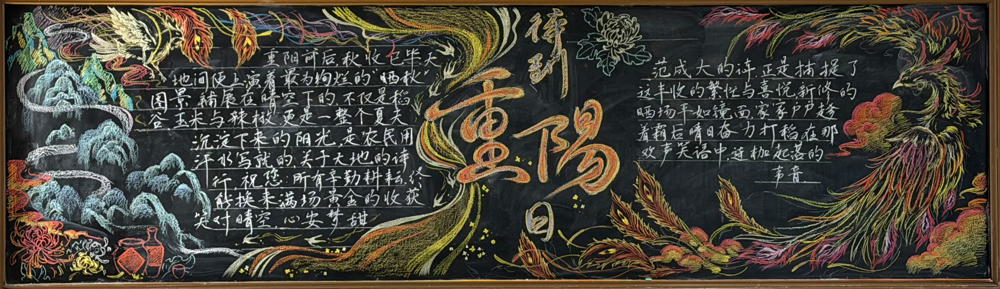 重阳前后秋收已毕天
地间便上演着最为绚烂的“晒秋”
图景.铺展在晴空下的.不仅是稻
谷玉米与辣椒更是一整个夏天
沉淀下来的阳光.是农民用
汗水写就的.关于天地的诗
行.祝您:所有辛勤耕耘.终
能换来满场黄金的收获
笑对晴空.心安梦甜
待到
重陽
日
范成大的诗.正是捕捉了
这丰收的繁忙与喜悦.新修的
晒场平如镜面.家家户户趁
着霜后晴日奋力打稻.在那
欢声笑语中.连枷起落的
声音